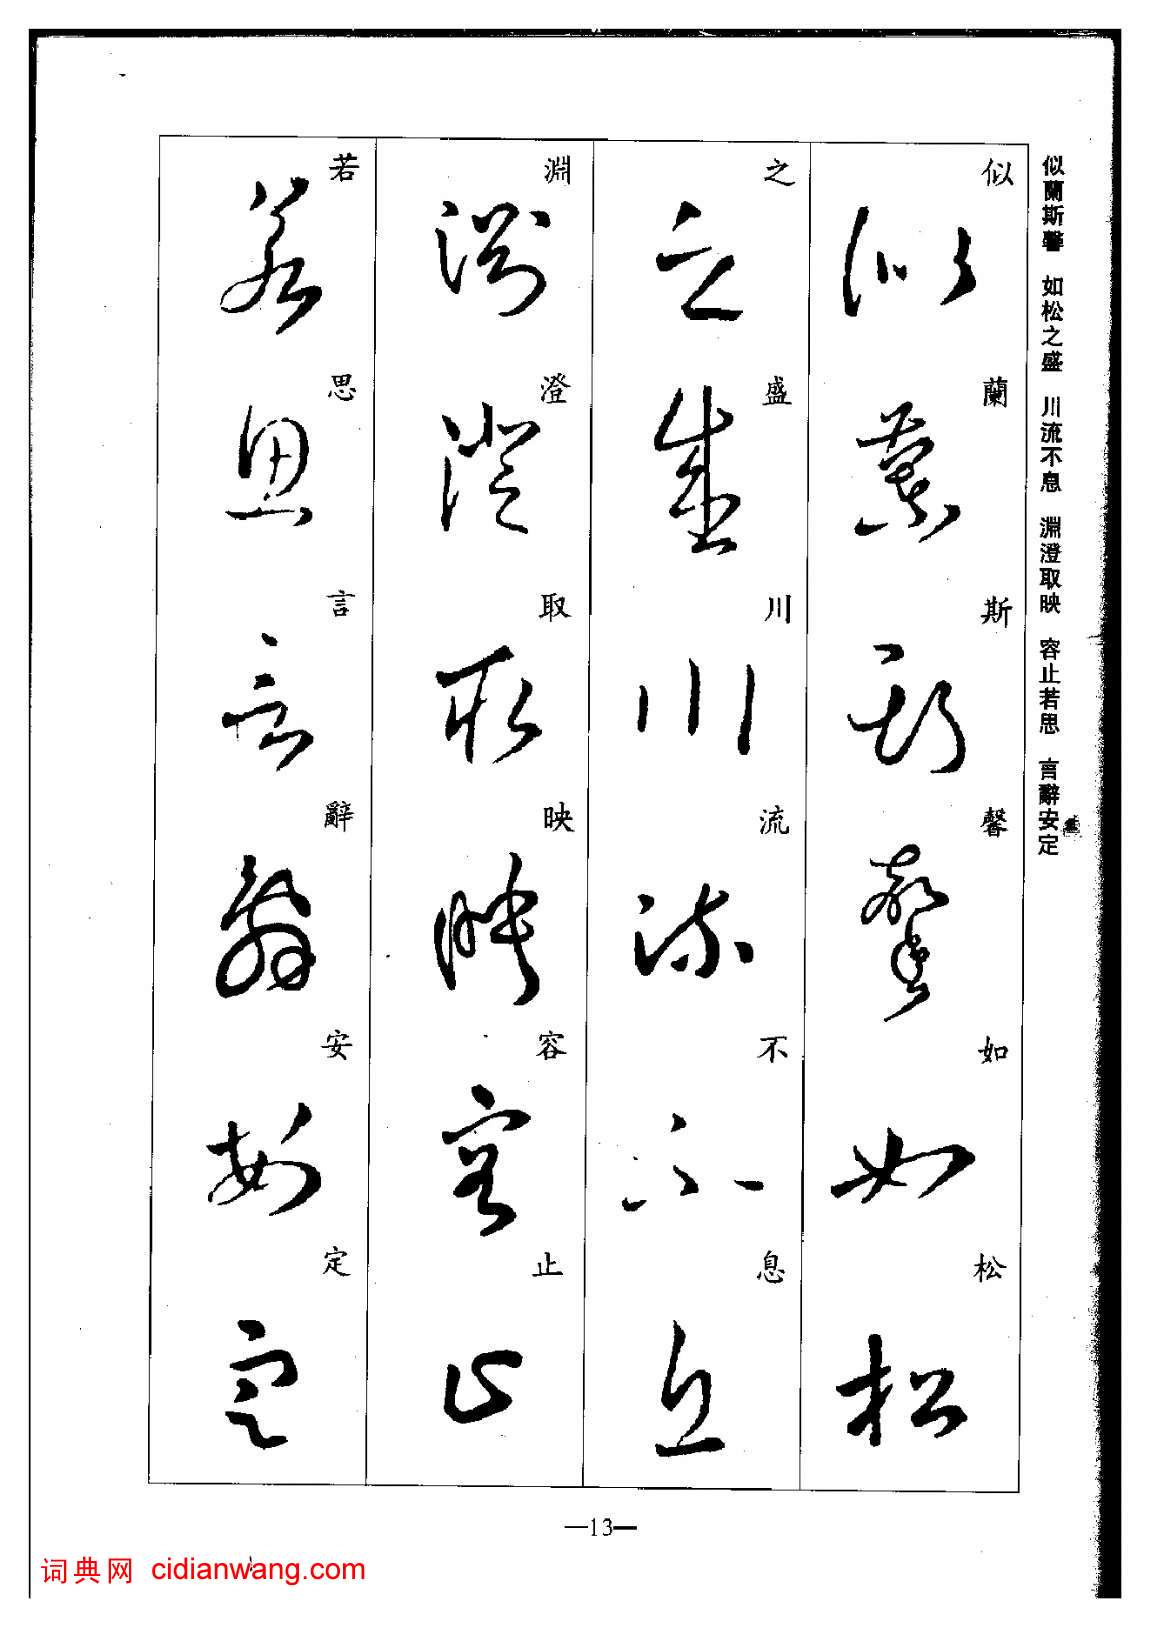 似蘭斯馨 如松之盛 川流不息 淵澄取映 容止若思 言辭安定
似蘭斯馨如松
之盛川流不息
淵澄取映容止
若思言辭安定
—13—
词典网 cidianwang.com